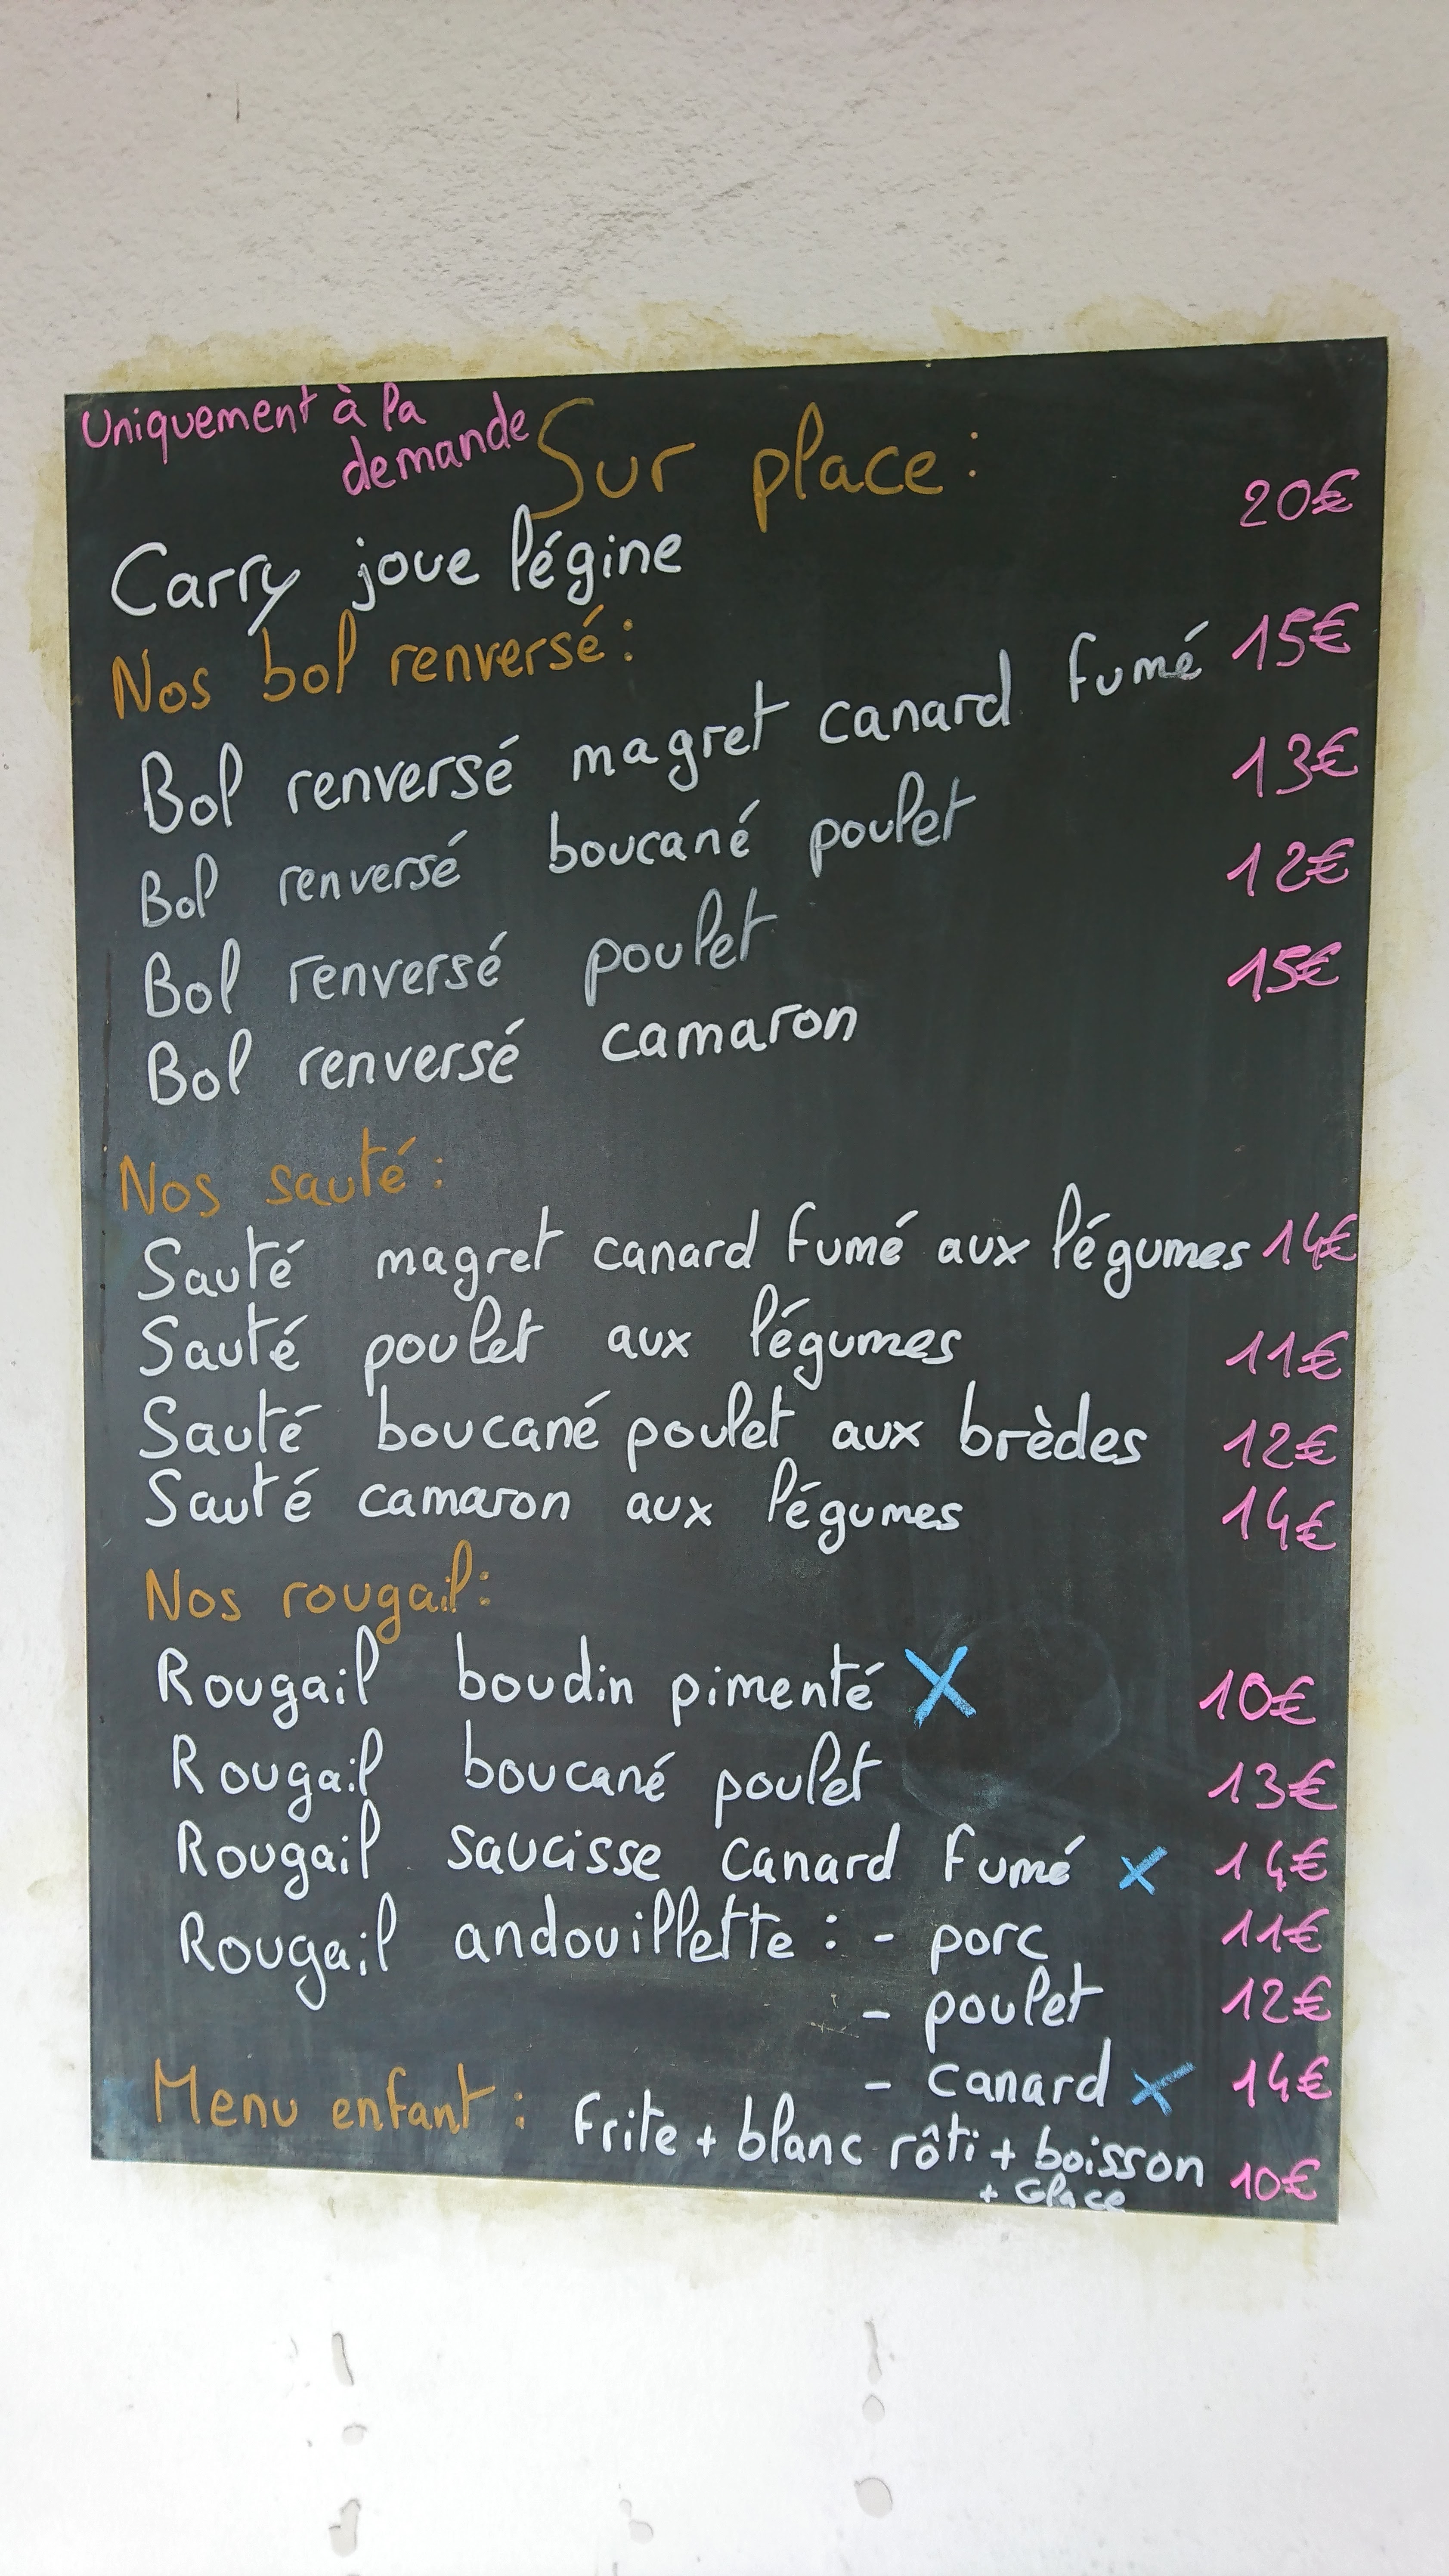 Uniquement à la
demande
Sur place :
Carry joue légine 20€
Nos bol renversé :
Bol renversé magret canard fumé 15€
Bol renversé boucané poulet 13€
Bol renversé poulet 12€
Bol renversé camaron 15€
Nos sauté :
Sauté magret canard fumé aux légumes 14€
Sauté poulet aux légumes 11€
Sauté boucané poulet aux brèdes 12€
Sauté camaron aux légumes 14€
Nos rougail :
Rougail boudin pimenté X 10€
Rougail boucané poulet 13€
Rougail saucisse canard fumé x 14€
Rougail andouillette : - porc 11€
- poulet 12€
- canard x 14€
Menu enfant : Frite + blanc rôti + boisson 10€
+ Glace